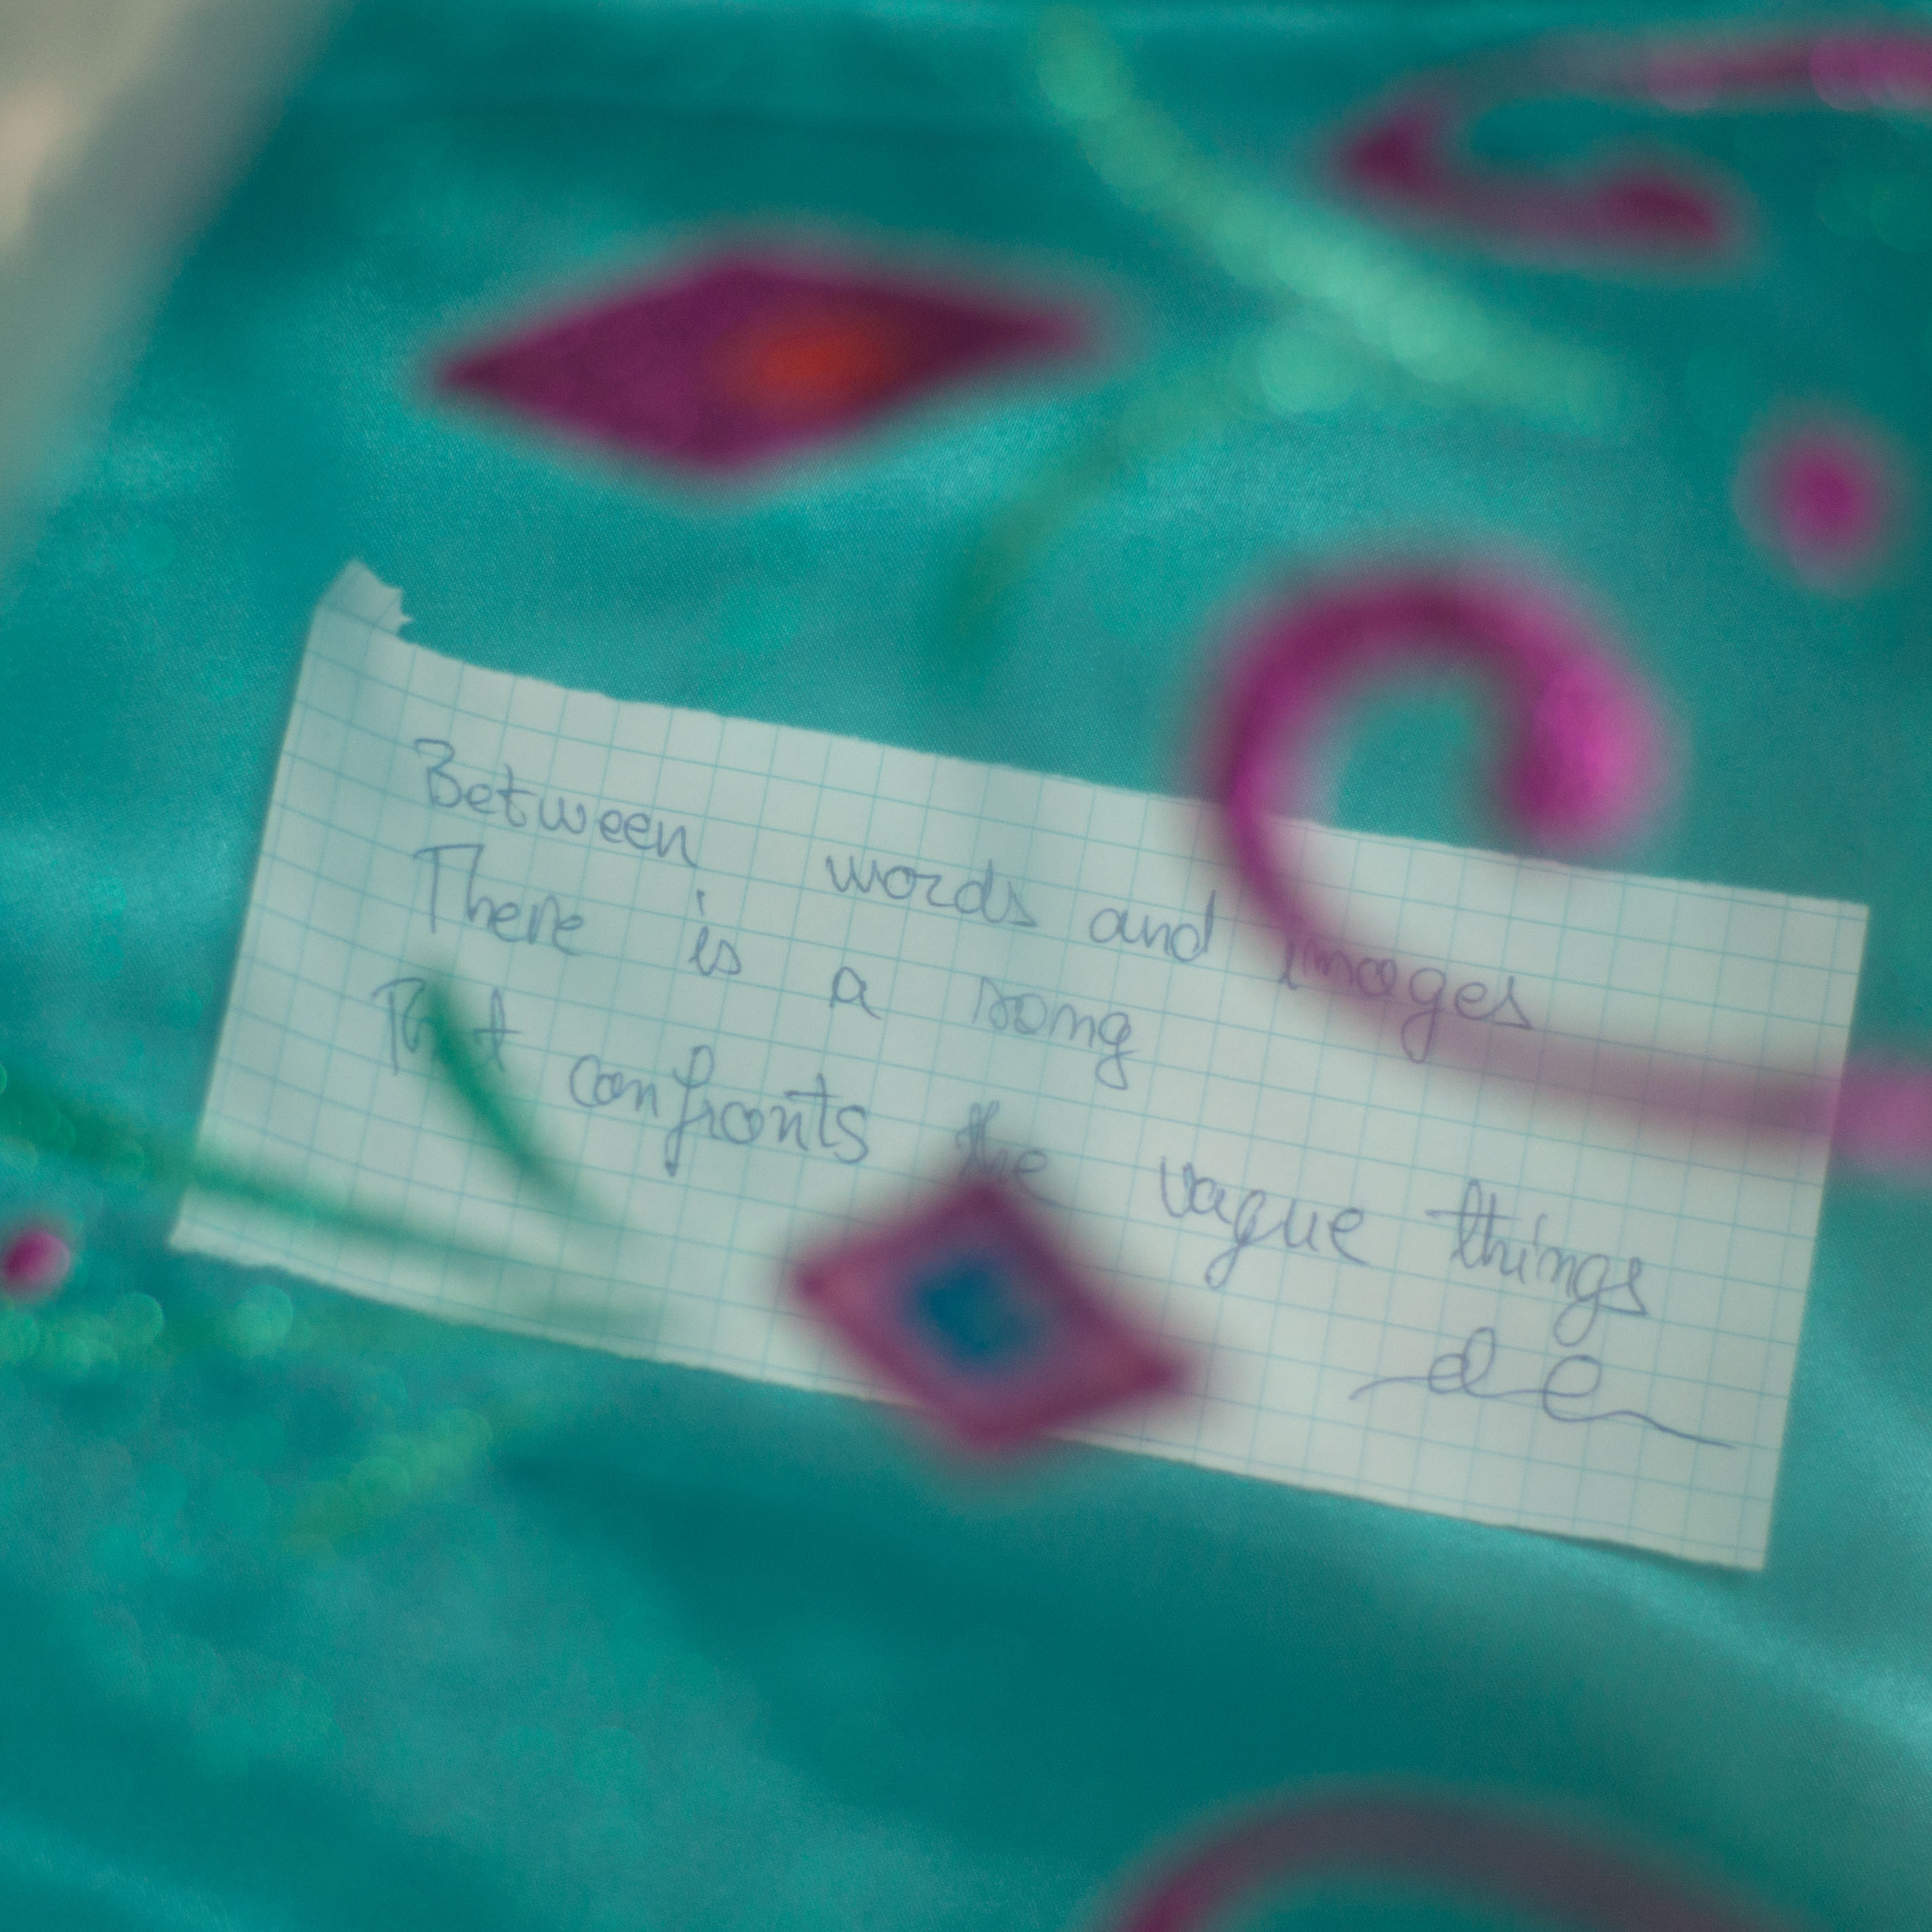 Between words and images
There is a song
That confronts the vague things